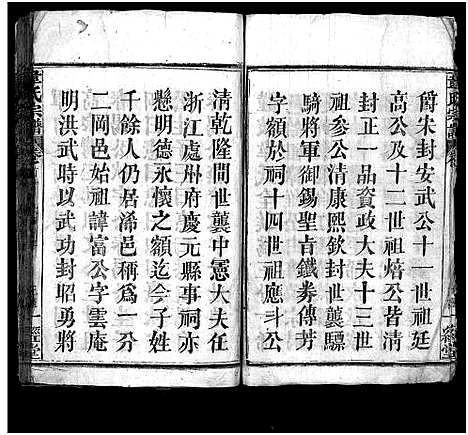 爵朱封安武公十一世祖廷
高公及十二世祖熺公皆清
封正一品資政大夫十三世
祖参公清康熙欽封世襲驃
騎將軍御錫聖貞鐵劵傳芳
字額於祠十四世祖應斗公
清乾隆間世襲中憲大夫任
浙江處州府慶元縣事祠亦
懸明德永懷之額迄今子姓
千餘人仍居浠邑稱爲一分
二岡邑始祖諱富公字雲庵
明洪武時以武功封昭勇將
氏宗譜